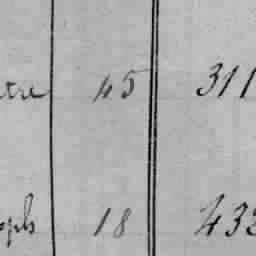 tre 45 311
oph 18 433